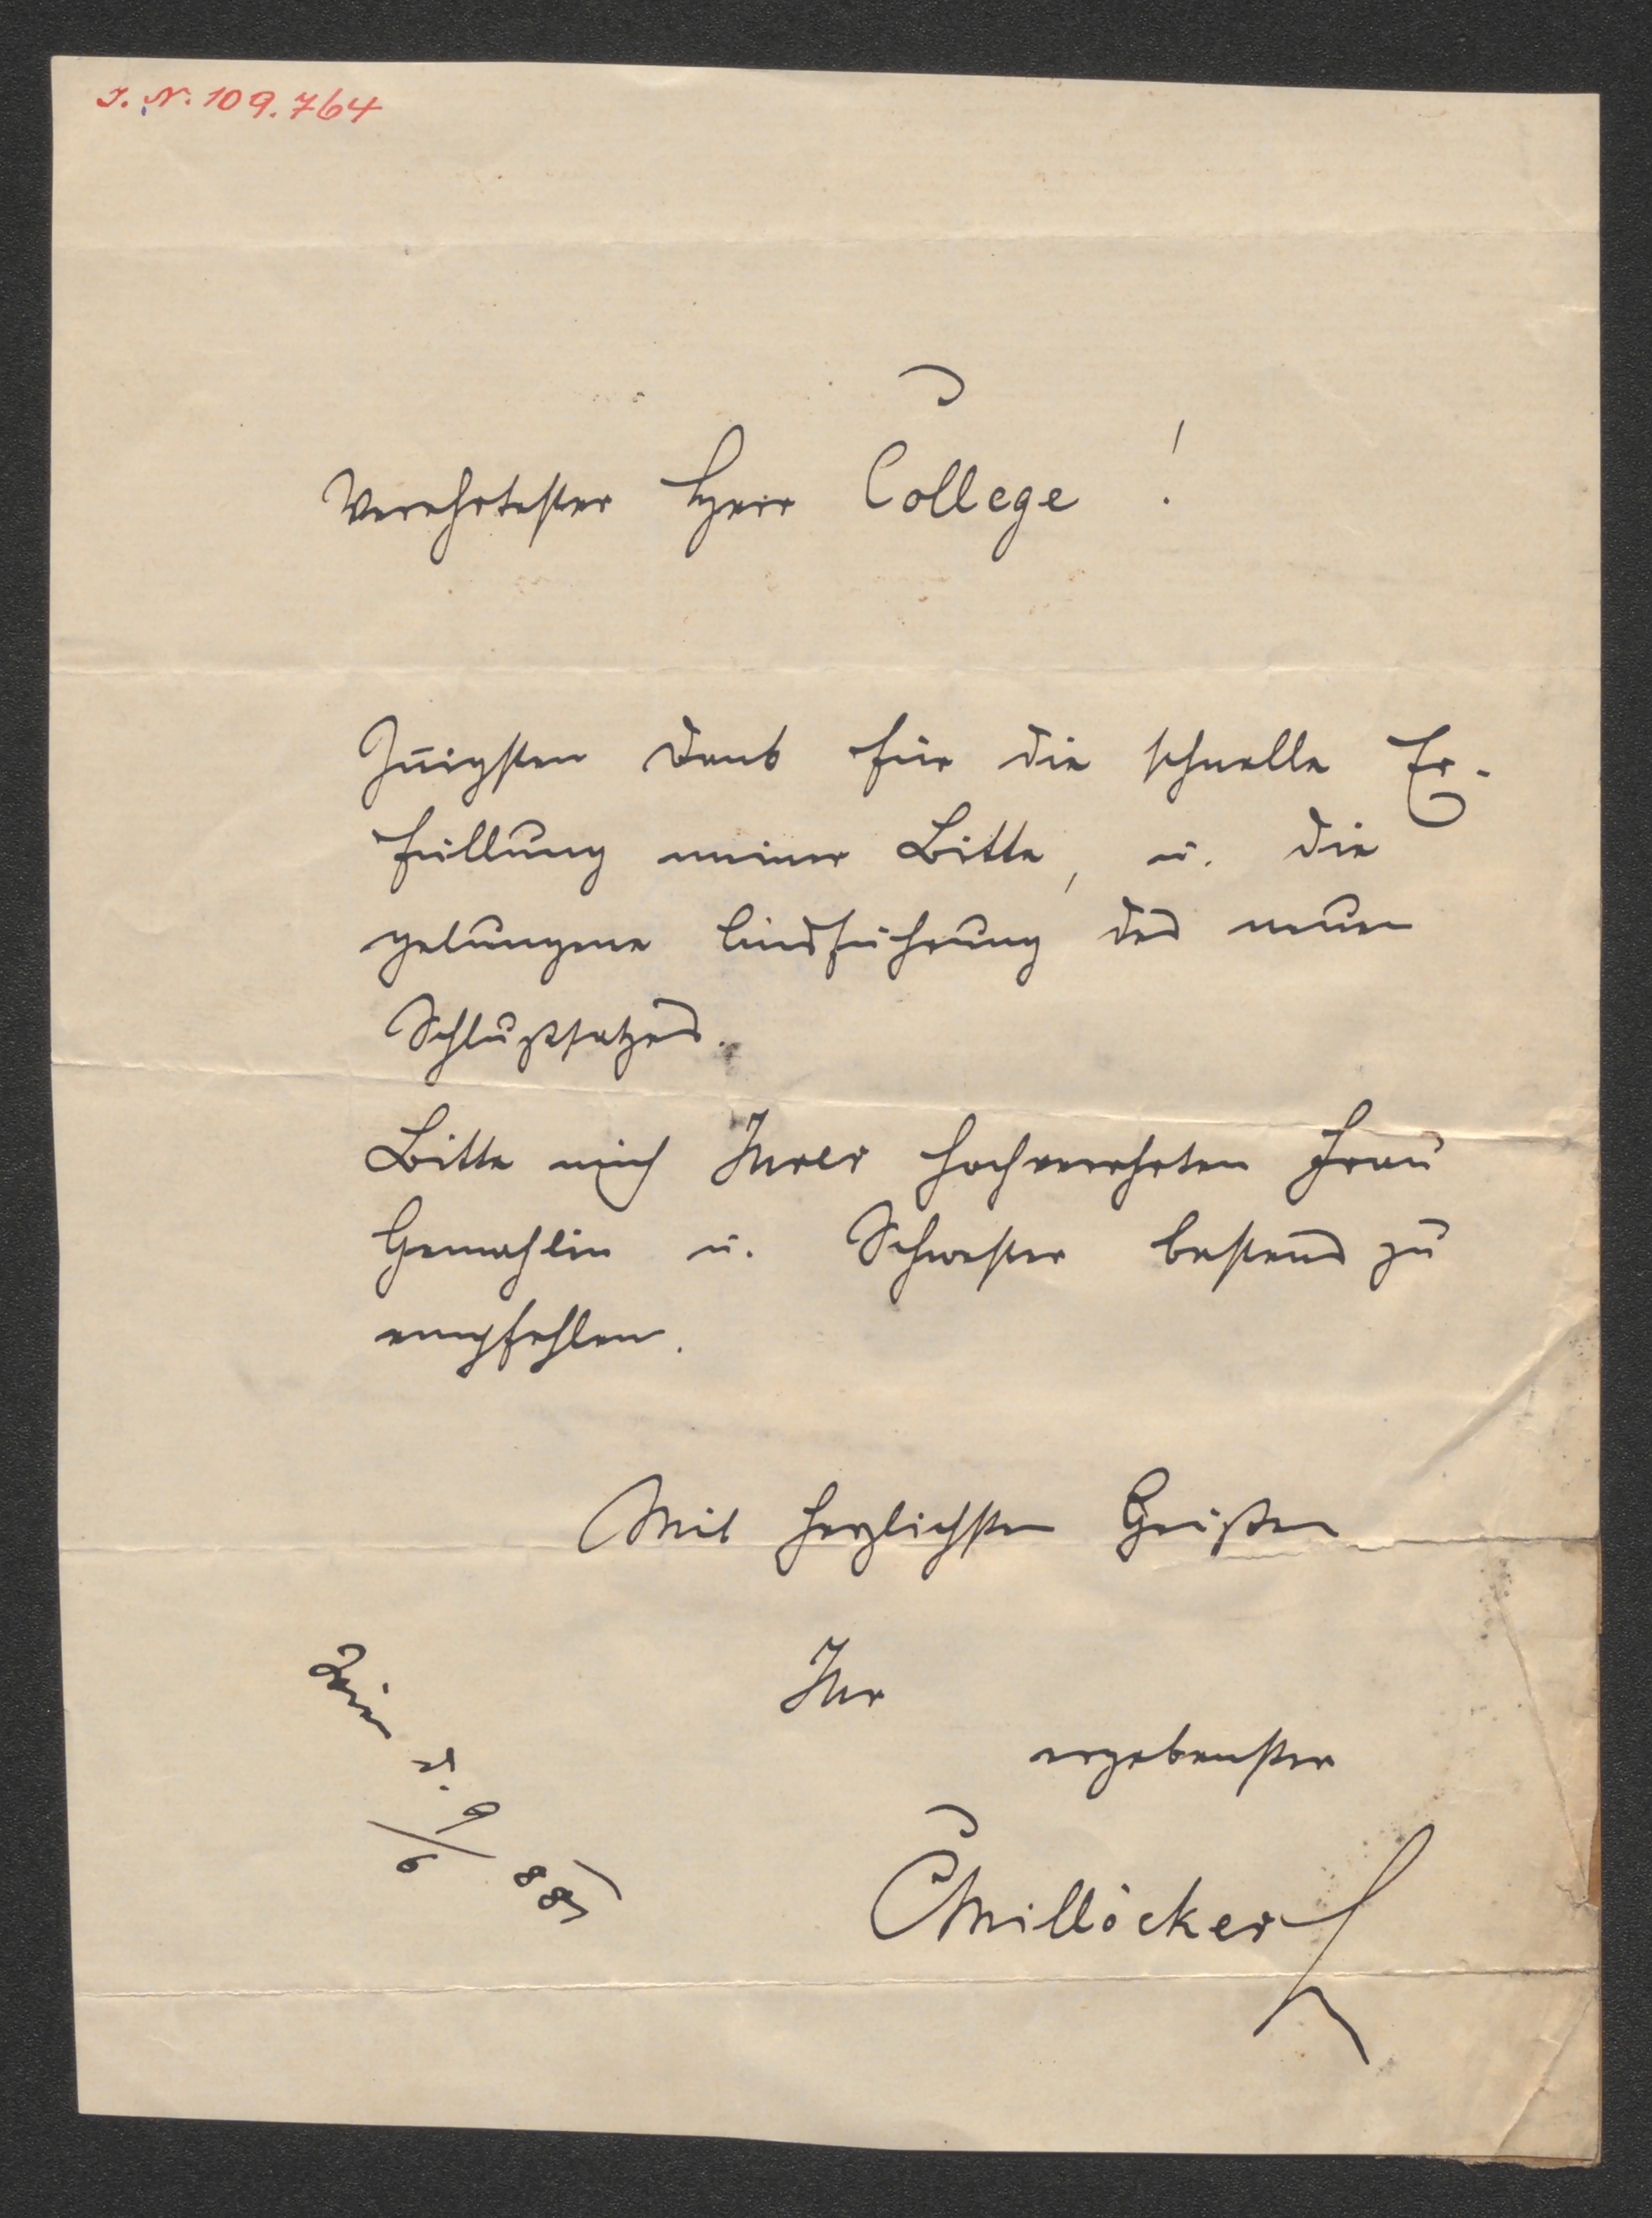 I. N. 109.764
Verehrtester Herr College !
Iñigsten Dank für die schnelle Er-
füllung meiner Bitte, u. die
gelungene Ausführung des neuen
Schlußsatzes.
Bitte mich Ihrer hochverehrten Frau
Gemahlin u. Schwester bestens zu
empfehlen.
Mit herzlichsten Grüßen
Ihr
ergebenster
CMillöcker
Wien d. 9/6 885